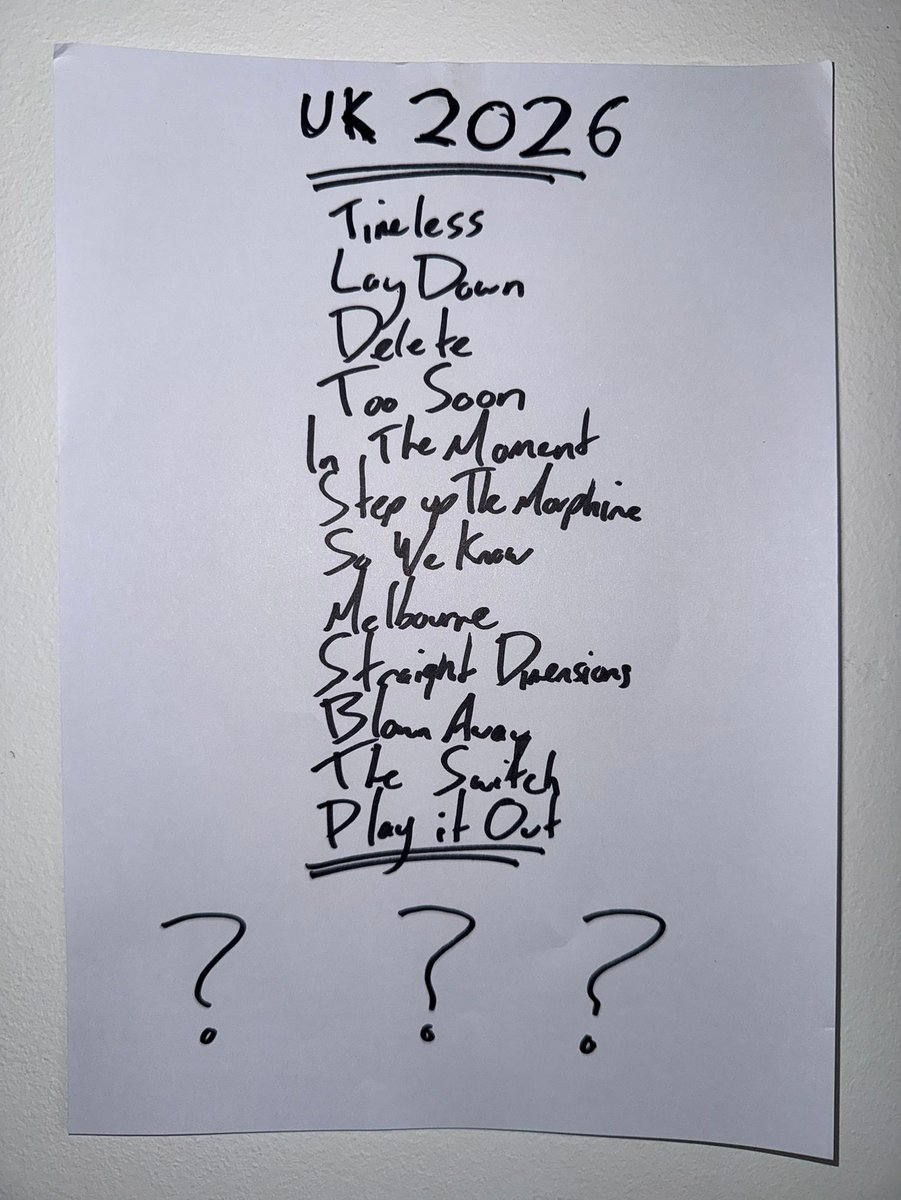 UK 2026
Timeless
Lay Down
Delete
Too Soon
In The Moment
Step up The Morphine
So We Know
Melbourne
Straight Dimensions
Blown Away
The Switch
Play it Out
? ? ?